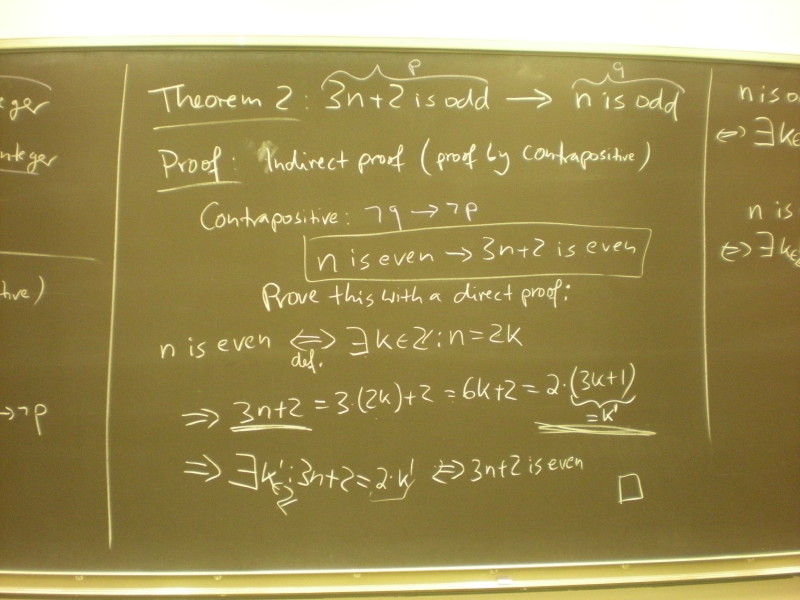 eger
nteger
tive)
→¬p
p
q
Theorem 2: 3n+2 is odd → n is odd
Proof: Indirect proof (proof by contrapositive)
Contrapositive: ¬q → ¬p
n is even → 3n+2 is even
Prove this with a direct proof:
n is even ⇔ ∃k∈ℤ: n=2k
def.
⇒ 3n+2 = 3·(2k)+2 = 6k+2 = 2·(3k+1)
=k'
⇒ ∃k': 3n+2=2·k' ⇔ 3n+2 is even □
∈ℤ
n is o
⇔ ∃k∈
n is
⇔ ∃k∈